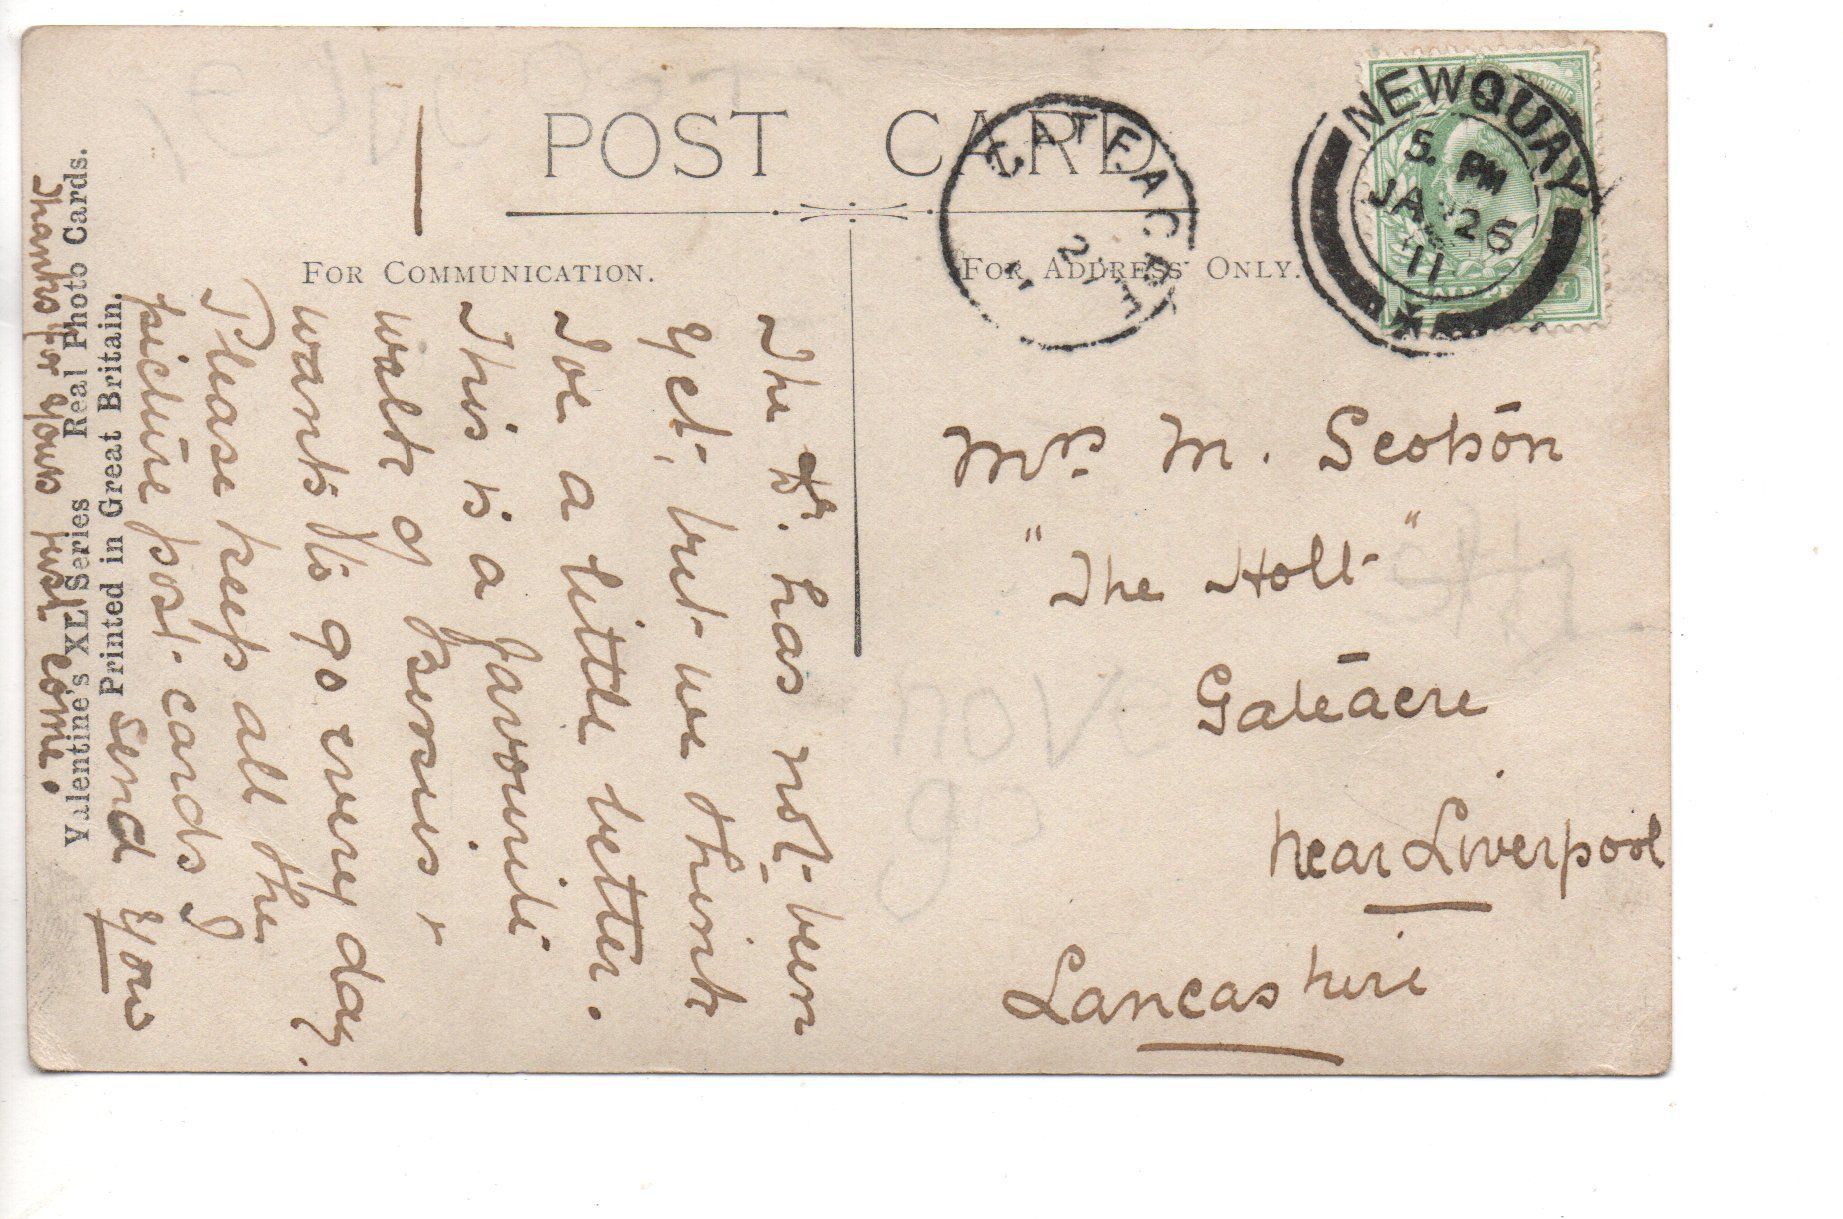 POST CARD
FOR COMMUNICATION.
FOR ADDRESS ONLY.
NEWQUAY
5. PM
JA 26
11
GATEACRE
The Dr. has not been
yet, but we think
Joe a little better.
This is a favourite
walk of Bersis &
wants to go every day.
Please keep all the
picture post-cards I
send you
Thanks for yours just come.
Valentine's XL Series Real Photo Cards.
Printed in Great Britain.
Mrs. M. Scotson
"The Holt"
Gateacre
near Liverpool
Lancashire